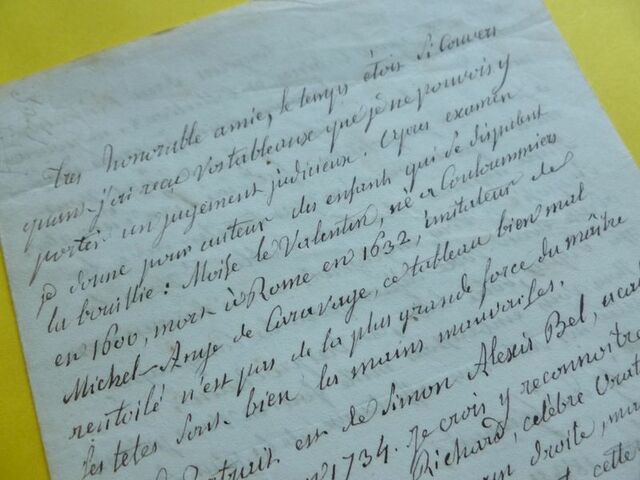 très honorable amie, le temps étois si couvers
quand j'ai reçu vos tableaux que je ne pouvois y
porter un jugement judicieux. Après examen
je donne pour auteur des enfants qui se disputent
la bouillie: Moïse le Valentin, né a Couloummiers
en 1600, mort à Rome en 1632, imitateur de
Michel-Ange de Caravage, ce tableau bien mal
rentoilé n'est pas de la plus grande force du maître
les têtes sont bien les mains mauvaises.
Portrait est de Simon Alexis Bel, acad
1734. je crois y reconnoitre
Richard, célèbre Orat
main droite, ma
cette